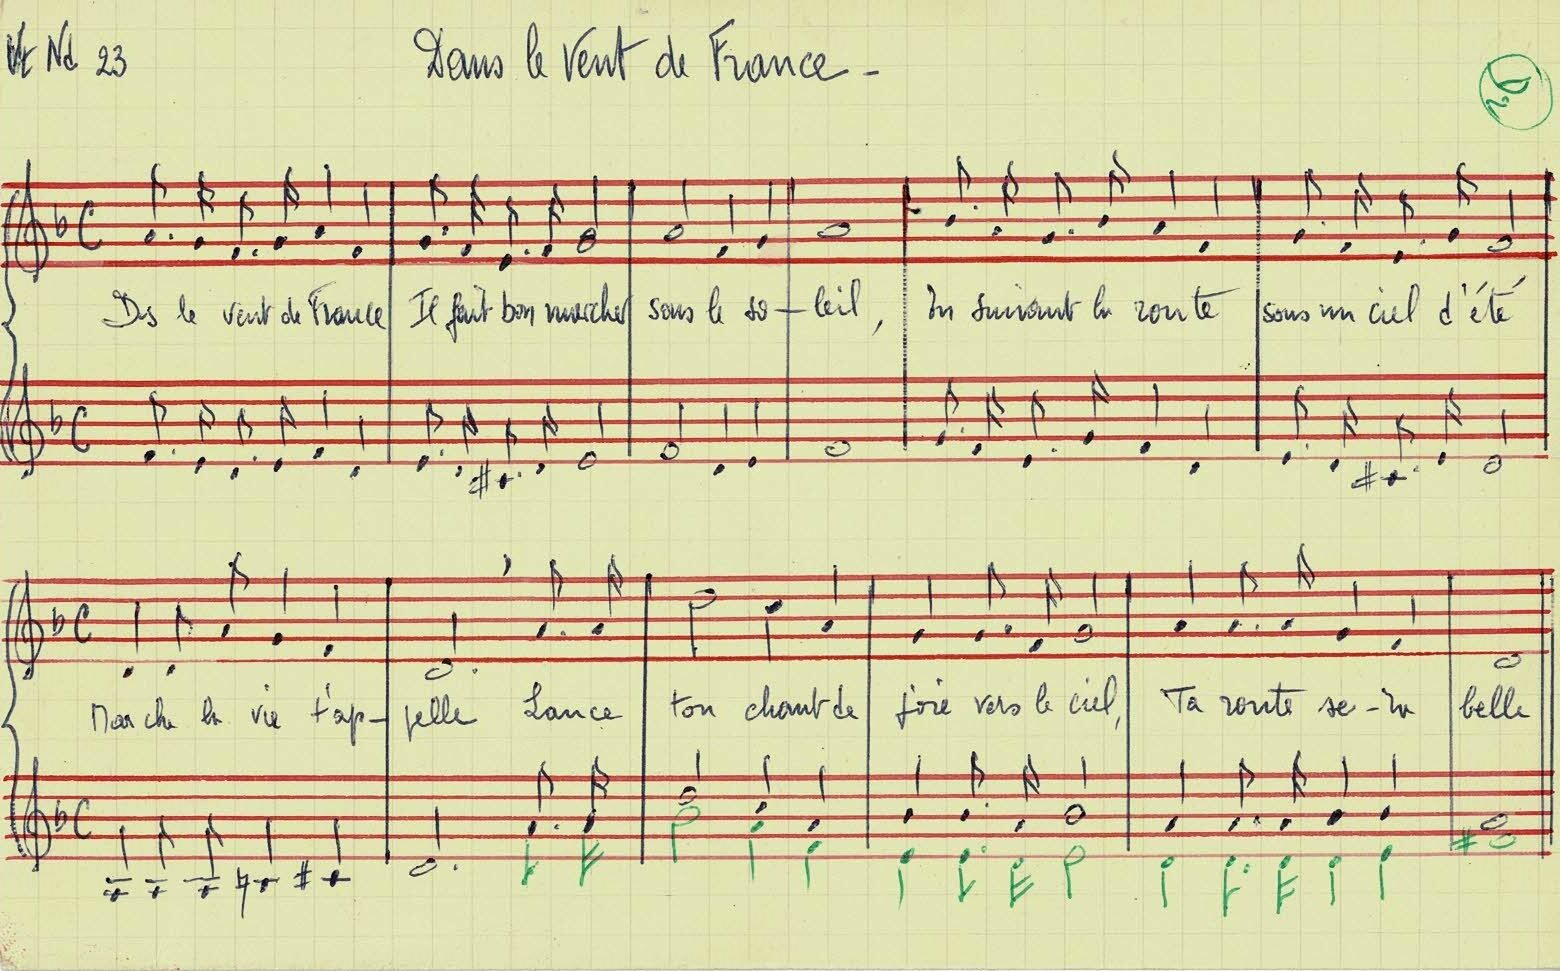 Vt Nd 23
Dans le Vent de France -
D2
Ds le vent de France Il fait bon marcher sous le so-leil, En suivant la route sous un ciel d'été
Marche la vie t'ap-pelle Lance ton chant de joie vers le ciel, Ta route se-ra belle